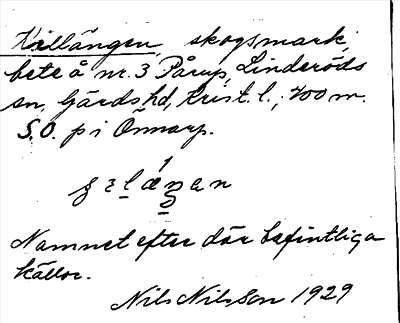 Källängen, skogsmark,
bete å nr. 3 Pårup, Linderöds
sn, Gärds hd, Krist. l.; 700 m.
S.O. p i Önnarp.
Namnet efter där befintliga
källor.
Nils Nilsson 1929